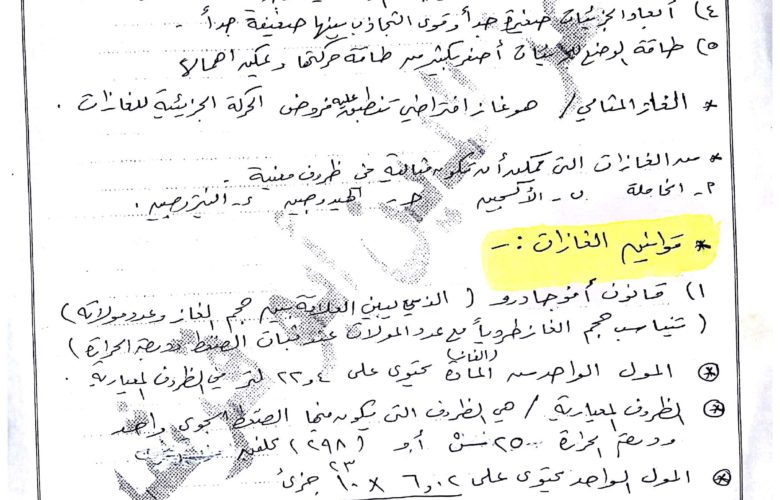 ٤) أبعاد الجزيئات صغيرة جداً وقوى التجاذب بينها ضعيفة جداً .
٥) طاقة الوضع للجزيئات أصغر بكثير من طاقة حركتها ويمكن اهمالها
* الغاز المثالي / هو غاز افتراضي تنطبق عليه فروض الحركة الجزيئية للغازات .
* من الغازات التي يمكن أن تكون مثالية في ظروف معينة .
٢- الخاملة ب- الأكسجين ج- الهيدروجين د- النيتروجين .
* قوانين الغازات :-
١) قانون أفوجادرو ( الذي يبين العلاقة بين حجم الغاز وعدد مولاته )
( تتناسب حجم الغاز طردياً مع عدد المولات عند ثبات الضغط ودرجة الحرارة )
* المول الواحد من المادة (الغاز) يحتوي على ٢٢,٤ لتر في الظروف المعيارية .
* الظروف المعيارية / هي الظروف التي يكون فيها الضغط الجوي واحد
ودرجة الحرارة ٢٥ أو (٢٩٨) كلفن
* المول الواحد يحتوي على ٦,٠٢ × ١٠ ٢٣ جزئ